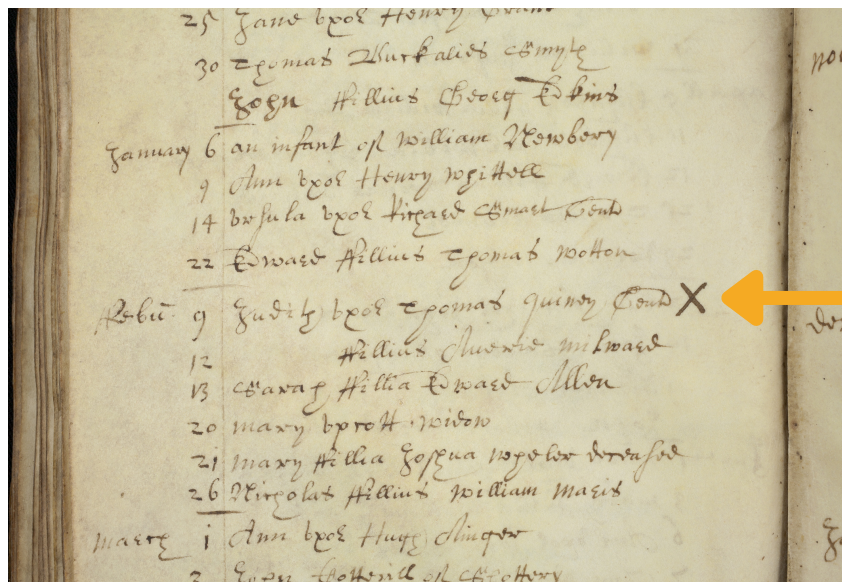 25 Jane vxor Henry
30 Thomas Buckalies Smyth
John ffillius Georg Edkins
January 6 an infant of William Newbery
9 Ann vxor Henry Whittell
14 Vrsula vxor Richard Smart Gent
22 Edward ffillius Thomas Wotton
ffebu: 9 Judith vxor Thomas Quiney Gent X
12 ffillius Milward
13 Sarah ffillia Edward Allen
20 Mary widow
21 Mary ffillia Joshua Wheler deceased
26 Nicholas ffillius William Maris
March 1 Ann vxor Hugh Ainger
John Cotterill of Shottery